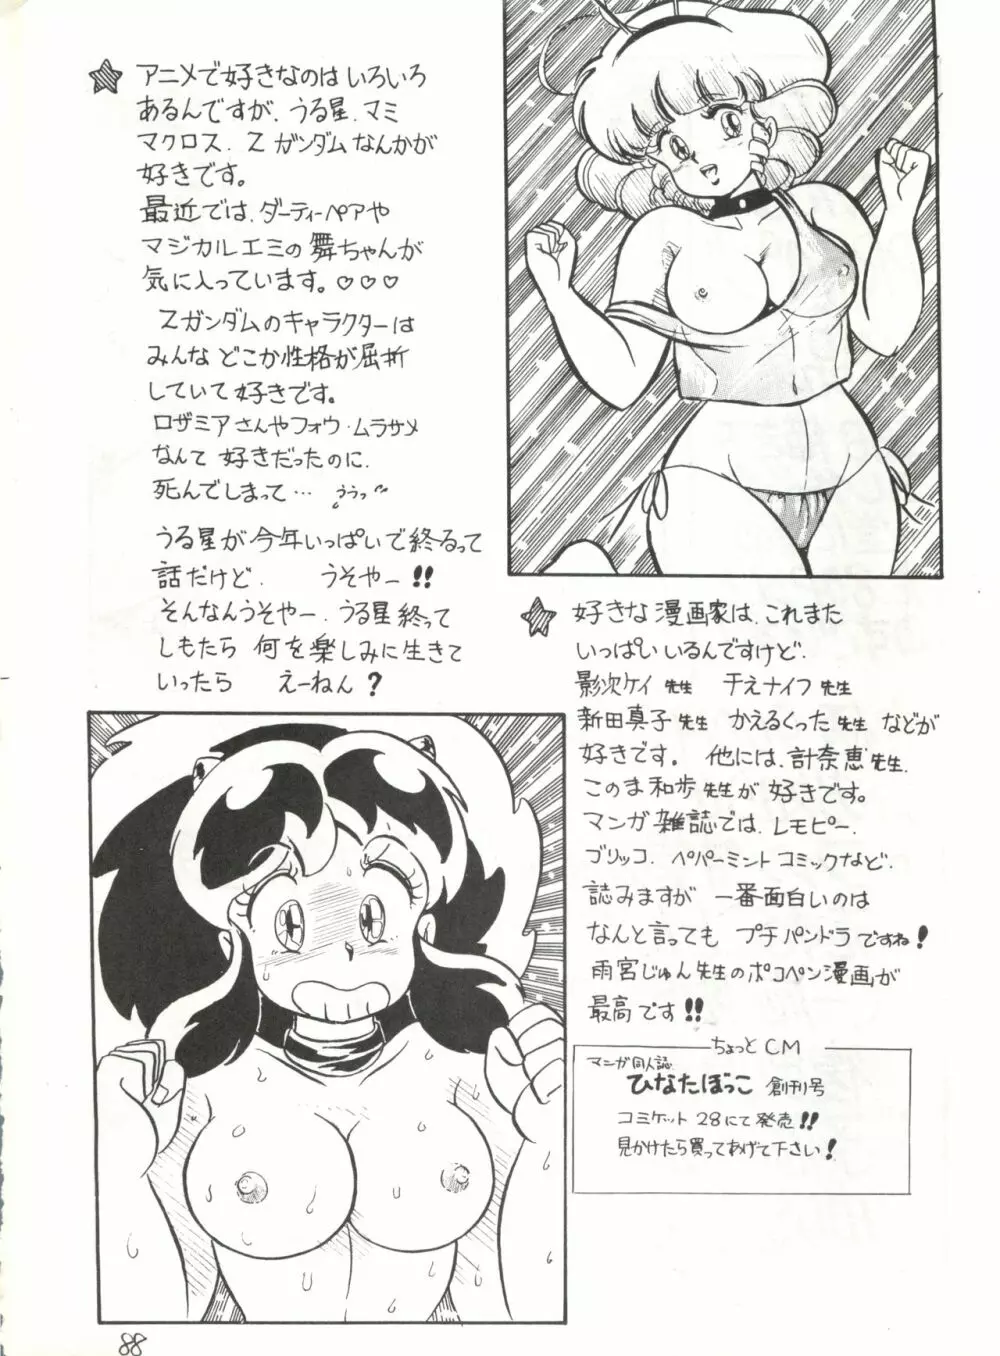 アニメで好きなのはいろいろ
あるんですが、うる星、マミ
マクロス、Zガンダムなんかが
好きです。
最近では、ダーティーペアや
マジカルエミの舞ちゃんが
気に入っています。♡♡♡
Zガンダムのキャラクターは
みんなどこか性格が屈折
していて好きです。
ロザミアさんやフォウ・ムラサメ
なんて好きだったのに、
死んでしまって… ううっ
うる星が今年いっぱいで終るって
話だけど、 うそやー!!
そんなんうそやー、うる星終って
しもたら 何を楽しみに生きて
いったら えーねん?
好きな漫画家は、これまた
いっぱいいるんですけど、
影次ケイ先生 千えナイフ先生
新田真子先生 かえるくった先生 などが
好きです。 他には、計奈恵先生、
このま和歩先生が好きです。
マンガ雑誌では、レモピー、
ブリッコ、ペパーミントコミックなど、
読みますが 一番面白いのは
なんと言っても プチパンドラですね!
雨宮じゅん先生のポコペン漫画が
最高です!!
ちょっとCM
マンガ同人誌
ひなたぼっこ 創刊号
コミケット28にて発売!!
見かけたら買ってあげて下さい!
88